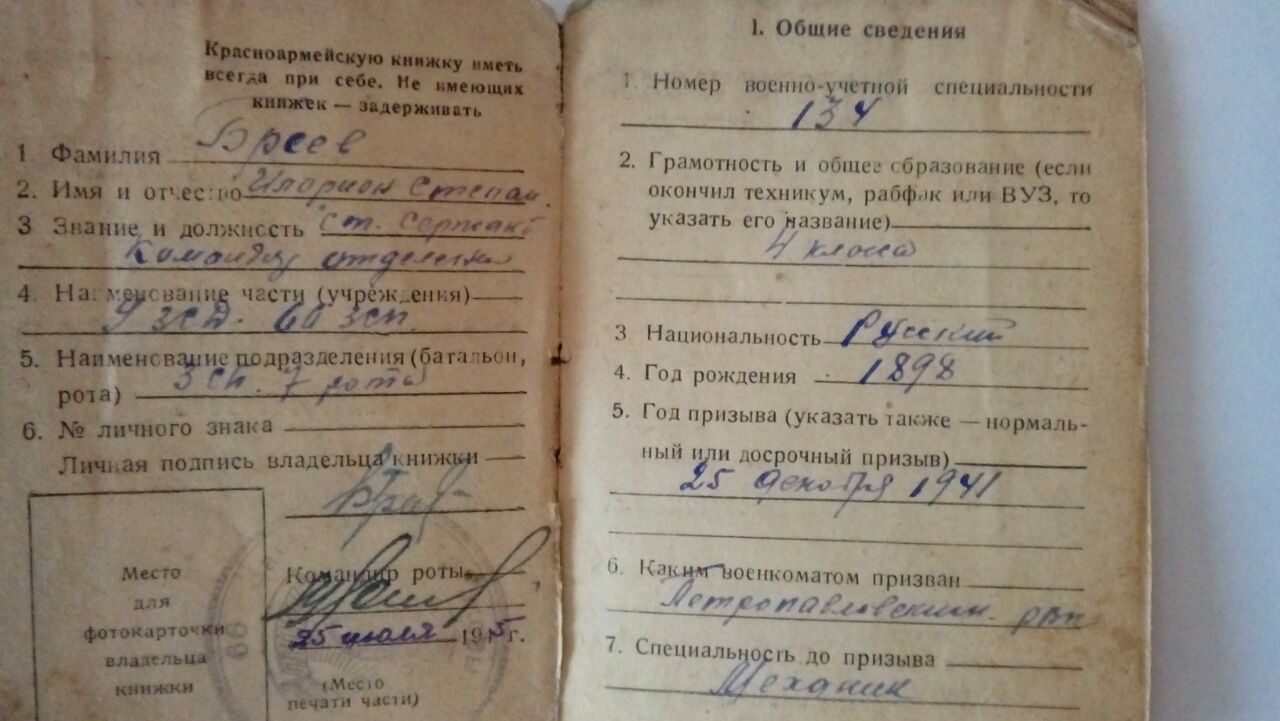 Красноармейскую книжку иметь
всегда при себе. Не имеющих
книжек — задерживать
1. Фамилия Бреев
2. Имя и отчество Иларион Степан.
3 Звание и должность ст. сержант
Командир отделения
4. Наименование части (учреждения)
9 зсд. 60 зсп.
5. Наименование подразделения (батальон,
рота) 3 сп. 7 рота
6. № личного знака
Личная подпись владельца книжки
Командир роты
25 июля 1945 г.
Место
для
фотокарточки
владельца
книжки
(Место
печати части)
1. Общие сведения
1. Номер военно-учетной специальности
134
2. Грамотность и общее образование (если
окончил техникум, рабфак или ВУЗ, то
указать его название)
4 класа
3 Национальность Русский
4. Год рождения 1898
5. Год призыва (указать также — нормаль-
ный или досрочный призыв)
25 декабря 1941
6. Каким военкоматом призван
Петропавловским. рвк
7. Специальность до призыва
Механик